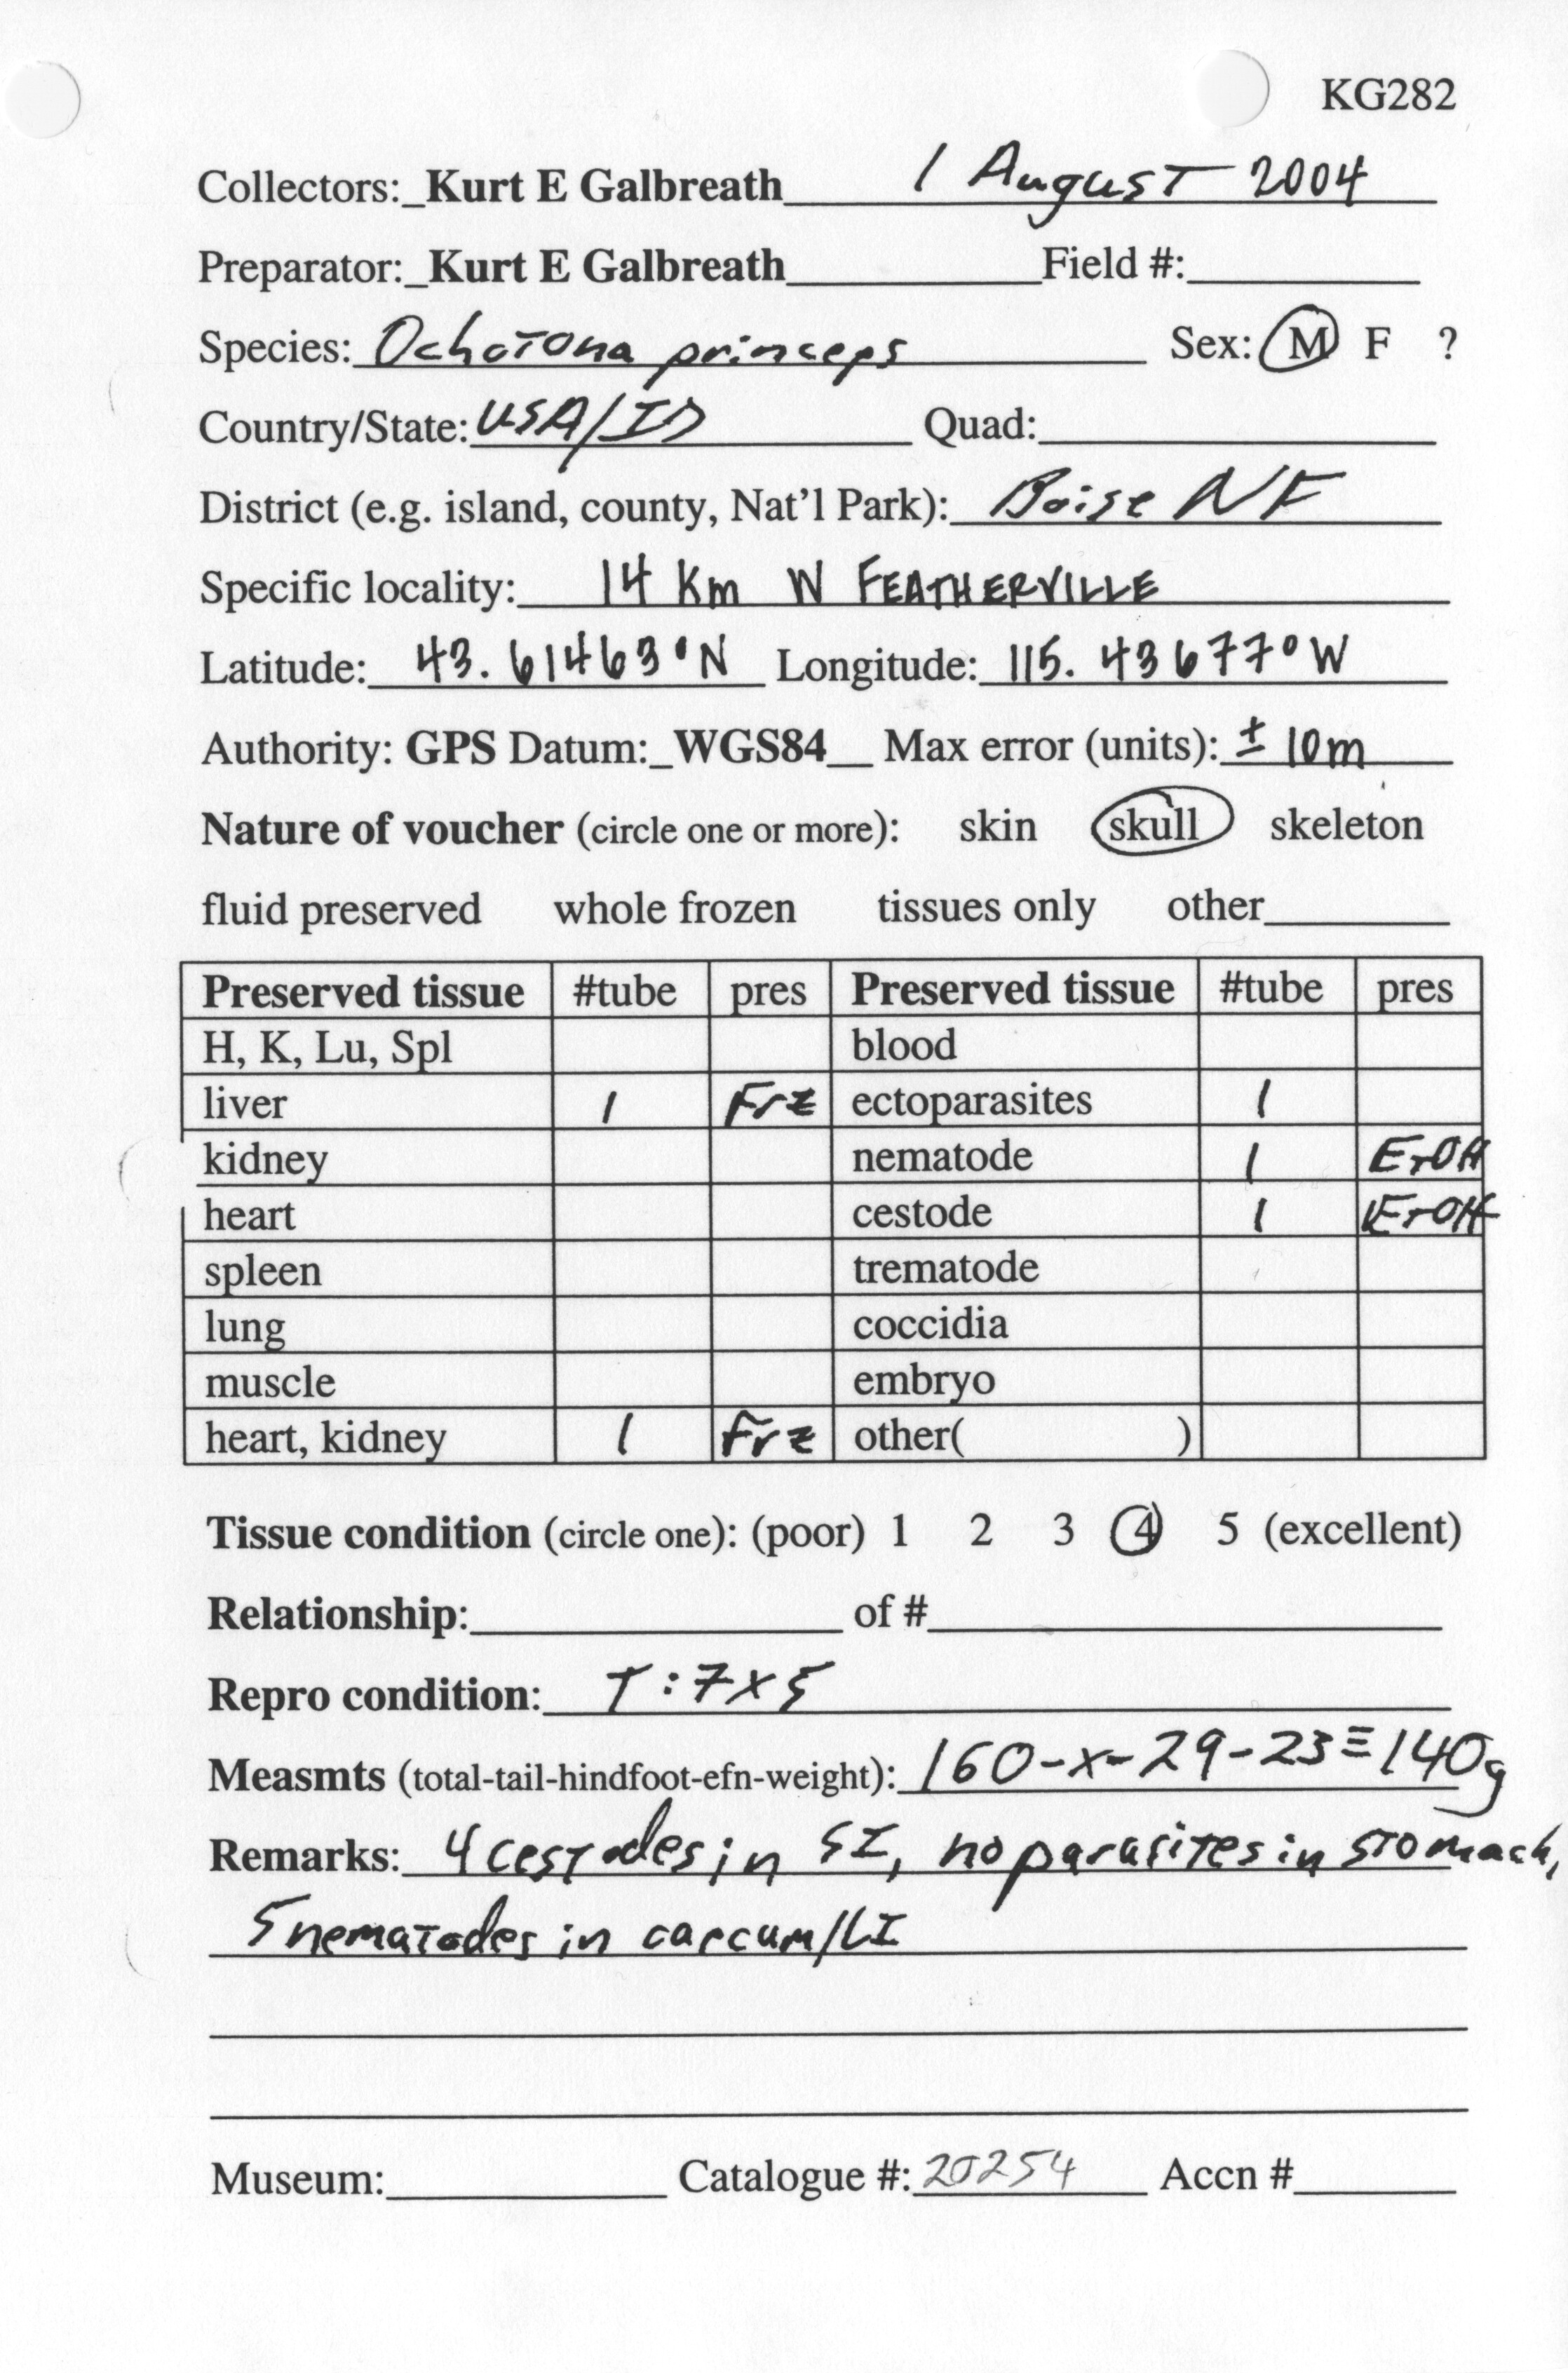 KG282
Collectors:_Kurt E Galbreath 1 August 2004
Preparator:_Kurt E Galbreath Field #:
Species: Ochotona princeps Sex: M F ?
Country/State: USA/ID Quad:
District (e.g. island, county, Nat'l Park): Boise NF
Specific locality: 14 Km W FEATHERVILLE
Latitude: 43.61463°N Longitude: 115.43677°W
Authority: GPS Datum:_WGS84__ Max error (units): ± 10m
Nature of voucher (circle one or more): skin skull skeleton
fluid preserved whole frozen tissues only other
Preserved tissue #tube pres Preserved tissue #tube pres
H, K, Lu, Spl blood
liver 1 Frz ectoparasites 1
kidney nematode 1 ETOH
heart cestode 1 ETOH
spleen trematode
lung coccidia
muscle embryo
heart, kidney 1 Frz other( )
Tissue condition (circle one): (poor) 1 2 3 4 5 (excellent)
Relationship: of #
Repro condition: T:7x5
Measmts (total-tail-hindfoot-efn-weight): 160-x-29-23≡140g
Remarks: 4 cestodes in SI, no parasites in stomach,
5 nematodes in caecum/LI
Museum: Catalogue #: 20254 Accn #